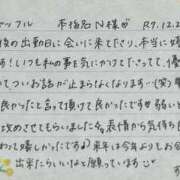 ャッフル　本指名N様♡　R7.12.2
後の出勤日に会いに来て下さり、本当に嬉
す!いつも私の事を気にかけて下さって、優
てついお話が止まらなくなります…(笑)
良かったと言って頂けて良かったです♡
攻めさせてもらいました。表情から気持ち
わって嬉しかったです♪来年は今年よりもお会
出来たらいいなと願っています